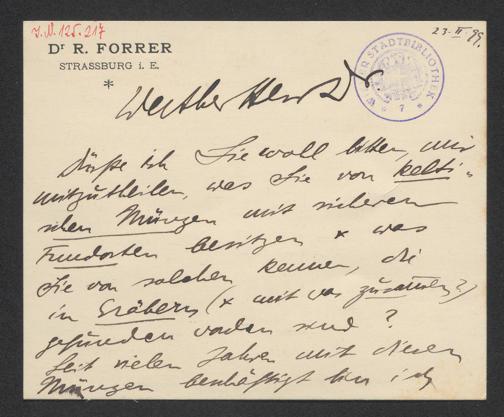 J.N. 125.217
23-II-99.
Dr R. FORRER
STRASSBURG i. E.
*
WIENER STADTBIBLIOTHEK
* 7 *
Werther Herr Dr
Dürfte ich Sie wohl bitten, mir
mitzutheilen, was Sie von kelti-
schen Münzen mit sicheren
Fundorten besitzen & was
Sie von solchen kennen, die
in Gräbern (& mit was zusammen?)
gefunden worden sind?
Seit vielen Jahren mit diesen
Münzen beschäftigt bin ich